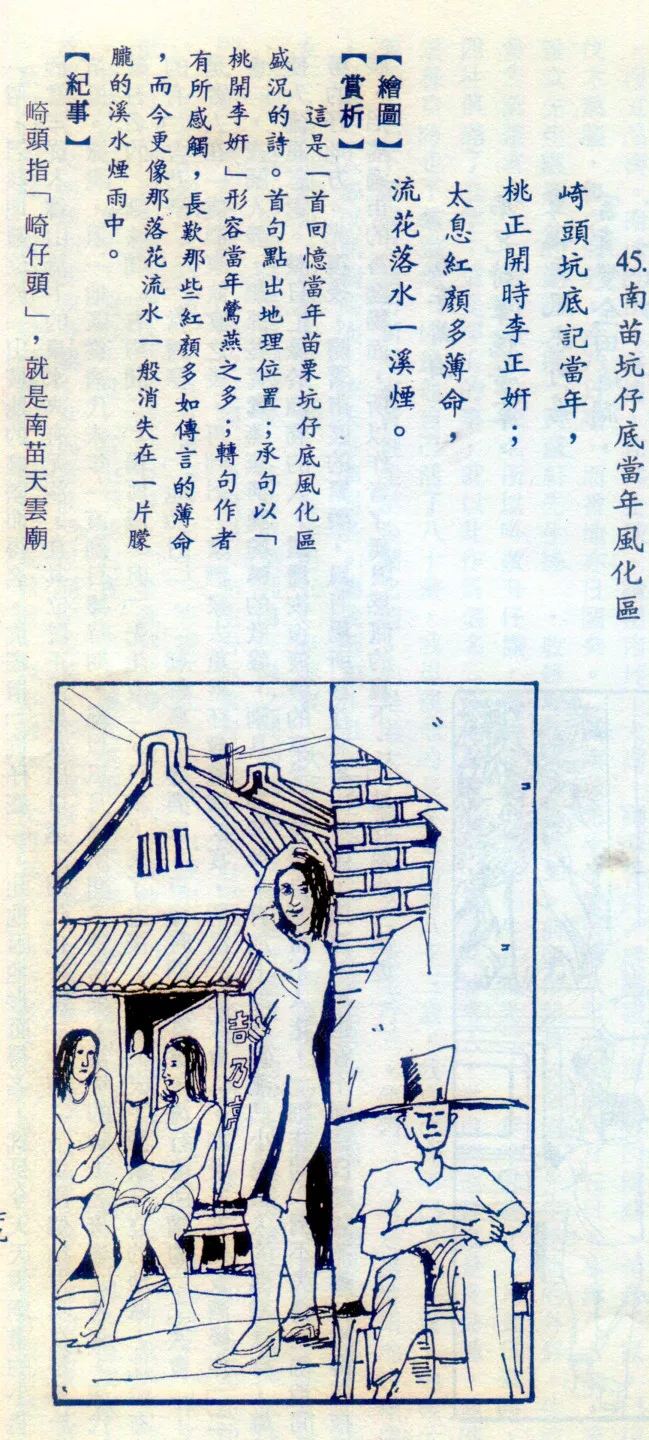 45.南苗坑仔底當年風化區
崎頭坑底記當年，
桃正開時李正妍；
太息紅顏多薄命，
流花落水一溪煙。
【繪圖】
【賞析】
這是一首回憶當年苗栗坑仔底風化區
盛況的詩。首句點出地理位置；承句以「
桃開李妍」形容當年鶯燕之多；轉句作者
有所感觸，長歎那些紅顏多如傳言的薄命
，而今更像那落花流水一般消失在一片朦
朧的溪水煙雨中。
【紀事】
崎頭指「崎仔頭」，就是南苗天雲廟